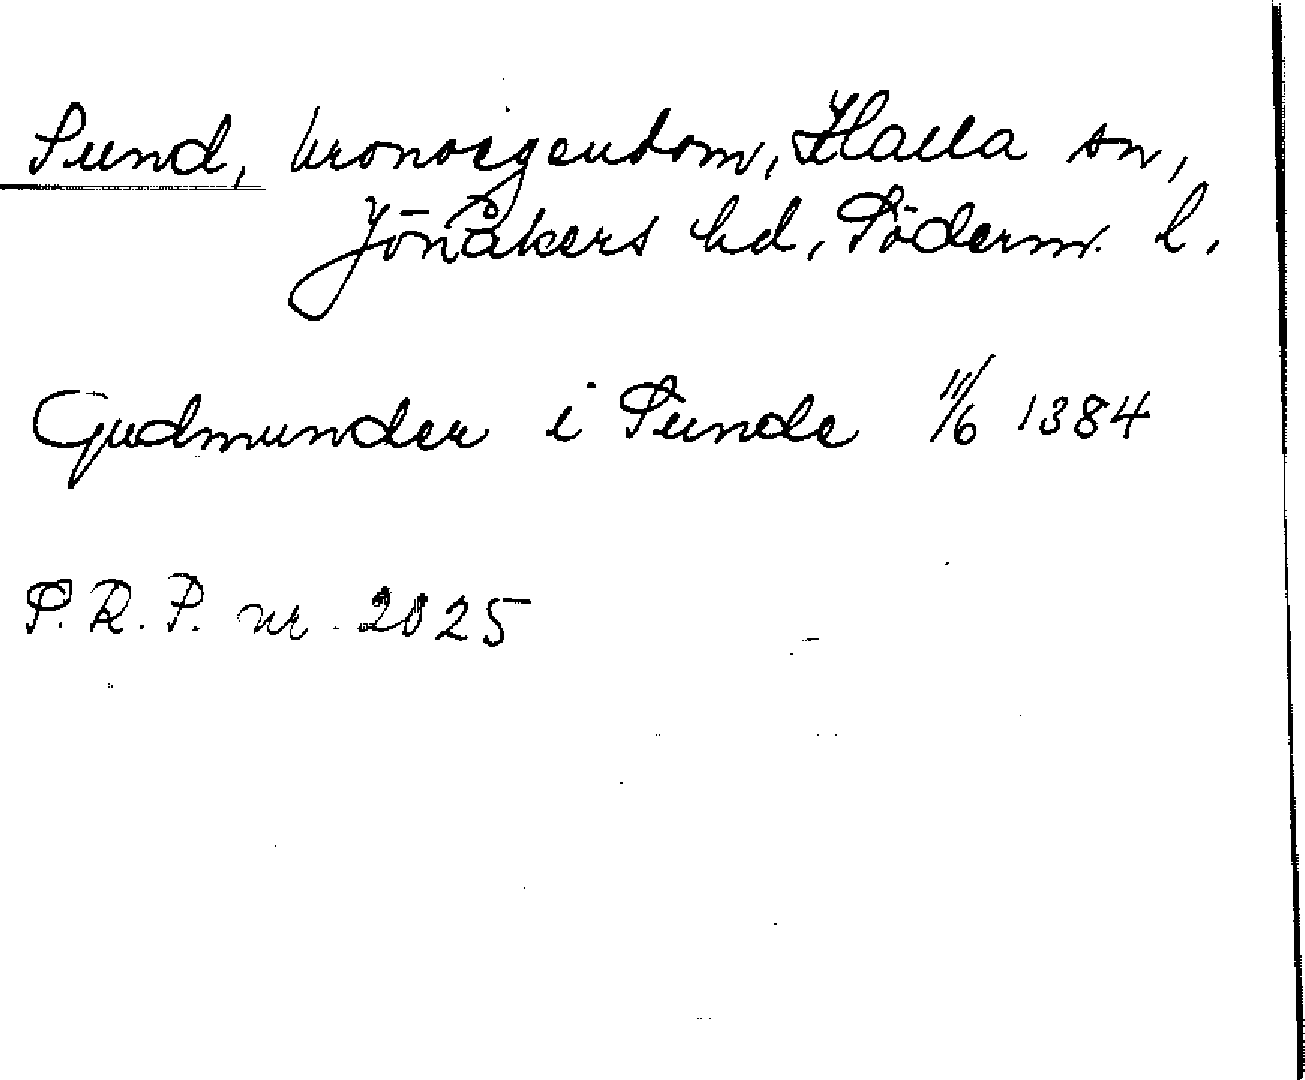 Sund, kronoegendom, Halla sn,
Jönåkers hd, Söderm. l.
Gudmunder i Sunde 11/6 1384
S.R.P. nr. 2025